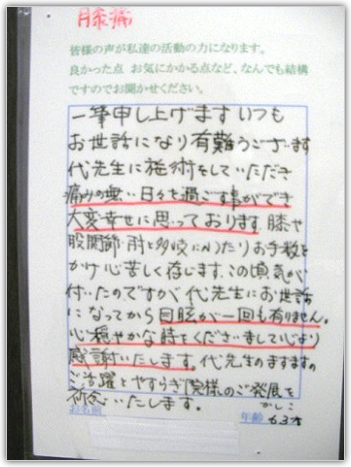 膝痛
皆様の声が私達の活動の力になります。
良かった点 お気にかかる点など、なんでも結構
ですのでお聞かせください。
一筆申し上げます いつも
お世話になり有難うございます
代先生に施術をしていただき
痛みの無い日々を過ごす事ができ
大変幸せに思っております。膝や
股関節 肘と多岐にわたりお手数を
かけ心苦しく存じます。この頃気が
付いたのですが代先生にお世話
になってから目眩が一回も有りません。
心穏やかな時をくださいまして心より
感謝いたします。代先生のますますの
ご活躍とやすらぎ院様のご発展を
祈念いたします。 かしこ
お名前 年齢 63才